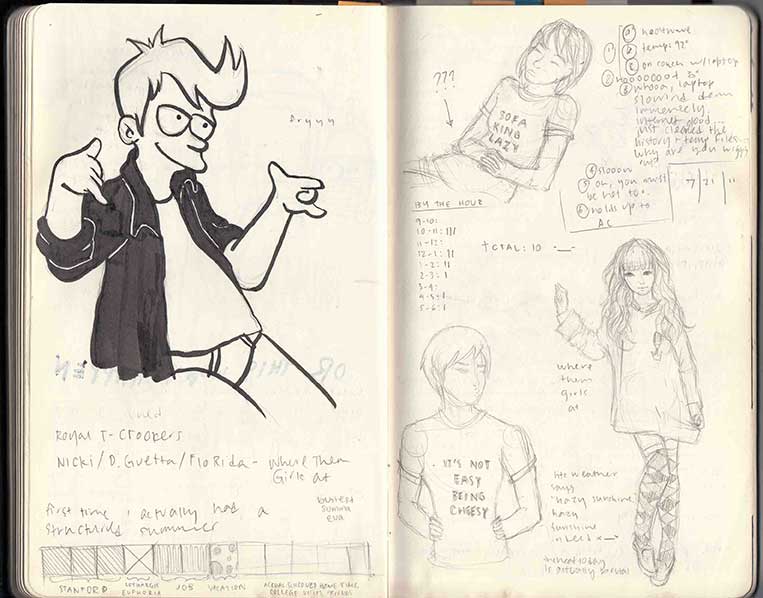 Royal T - Crookers
Nicki / D. Guetta / Flo Rida - Where Them
Girls at
first time i actually had a
structured summer
bustest
summa
eva
STANFORD
LETHARGIC
EUPHORIA
JOB
VACATION
ACTUAL SCHEDULED HOME TIME,
COLLEGE VISITS, FRIENDS
???
SOFA
KING
LAZY
① heatwave
② temp: 92°
③ on couch w/ laptop
whoaa, laptop
slowing down
immensely
internet good...
just cleaned the
history + temp files..
why are you
④ slooow
⑤ oh, you must
be hot too.
⑥ holds up to
AC
7 | 21 | 11
BY THE HOUR
9-10:
10-11: III
11-12:
12-1: II
1-2: II
2-3: I
3-4:
4-5: I
5-6: I
TOTAL: 10 -__-
where
them
girls
at
IT'S NOT
EASY
BEING
CHEESY
the weather
says
"hazy sunshine"
hazy
sunshine
the heat today
is actually brutal